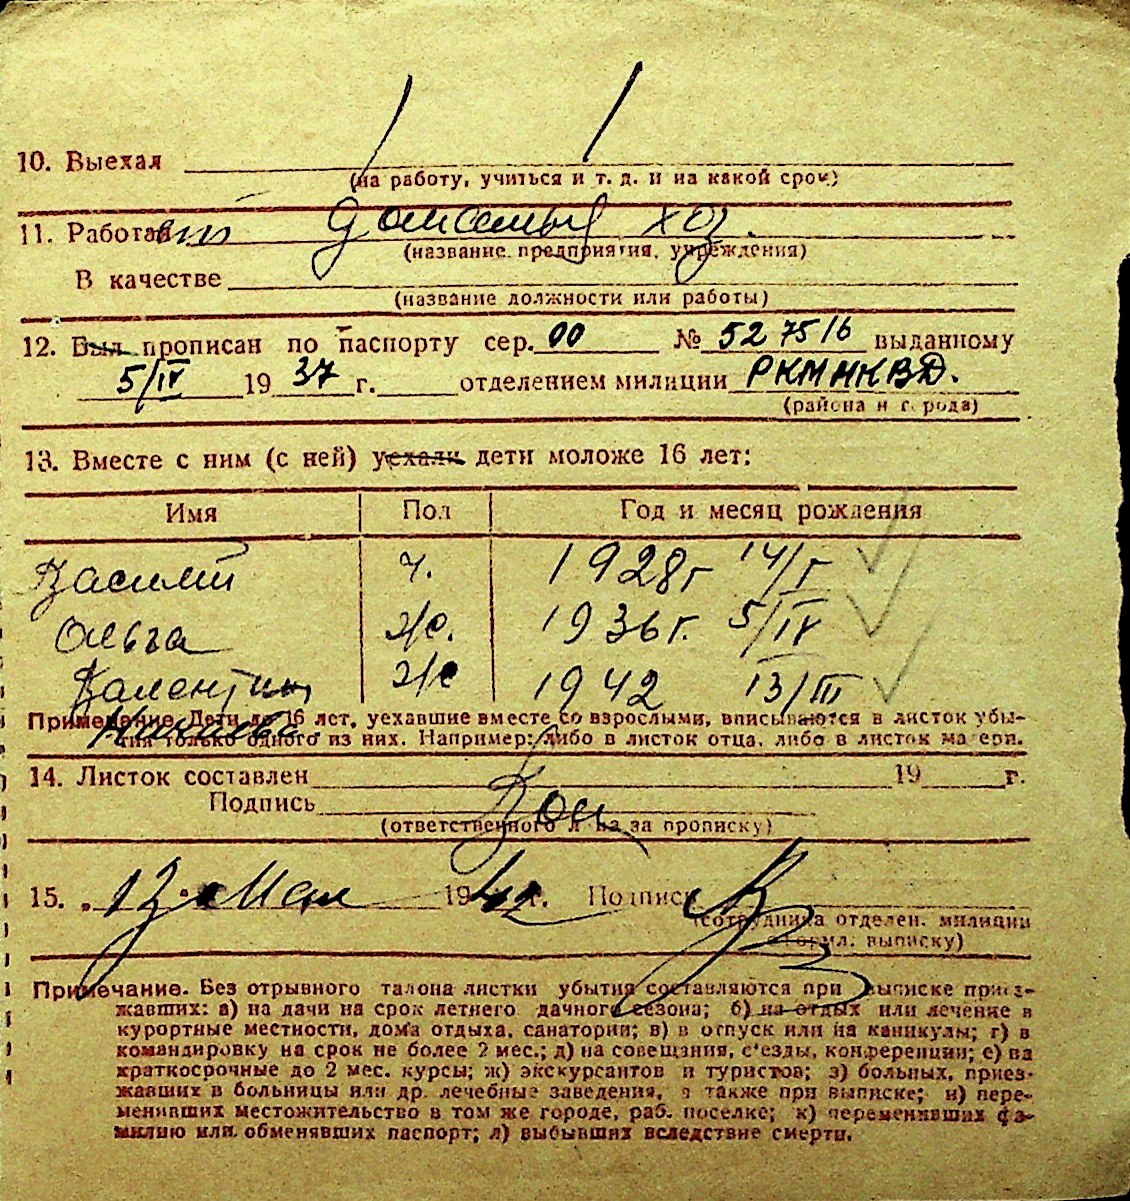 10. Выехал
(на работу, учиться и т. д. и на какой срок)
11. Работает домашнее хоз.
(название предприятия, учреждения)
В качестве
(название должности или работы)
12. Был прописан по паспорту сер. 00 № 527516 выданному
5/IV 1937 г. отделением милиции РКМ НКВД.
(района и города)
13. Вместе с ним (с ней) уехали дети моложе 16 лет:
Имя Пол Год и месяц рождения
Василий ч. 1928г 14/I
Ольга ж. 1936г. 5/IV
Валентина ж 1942 13/III
Примечание. Дети до 16 лет, уехавшие вместе со взрослыми, вписываются в листок убы-
тия только одного из них. Например: либо в листок отца, либо в листок матери.
14. Листок составлен 19 г.
Подпись
(ответственного лица за прописку)
15. „13" Мая 1942 г. Подпись
(сотрудника отделен. милиции
оформил. выписку)
Примечание. Без отрывного талона листки убытия составляются при выписке приез-
жавших: а) на дачи на срок летнего дачного сезона; б) на отдых или лечение в
курортные местности, дома отдыха, санатории; в) в отпуск или на каникулы; г) в
командировку на срок не более 2 мес.; д) на совещания, с'езды, конференции; е) на
краткосрочные до 2 мес. курсы; ж) экскурсантов и туристов; з) больных, приез-
жавших в больницы или др. лечебные заведения, а также при выписке; и) пере-
менивших местожительство в том же городе, раб. поселке; к) переменивших фа-
милию или обменявших паспорт; л) выбывших вследствие смерти.